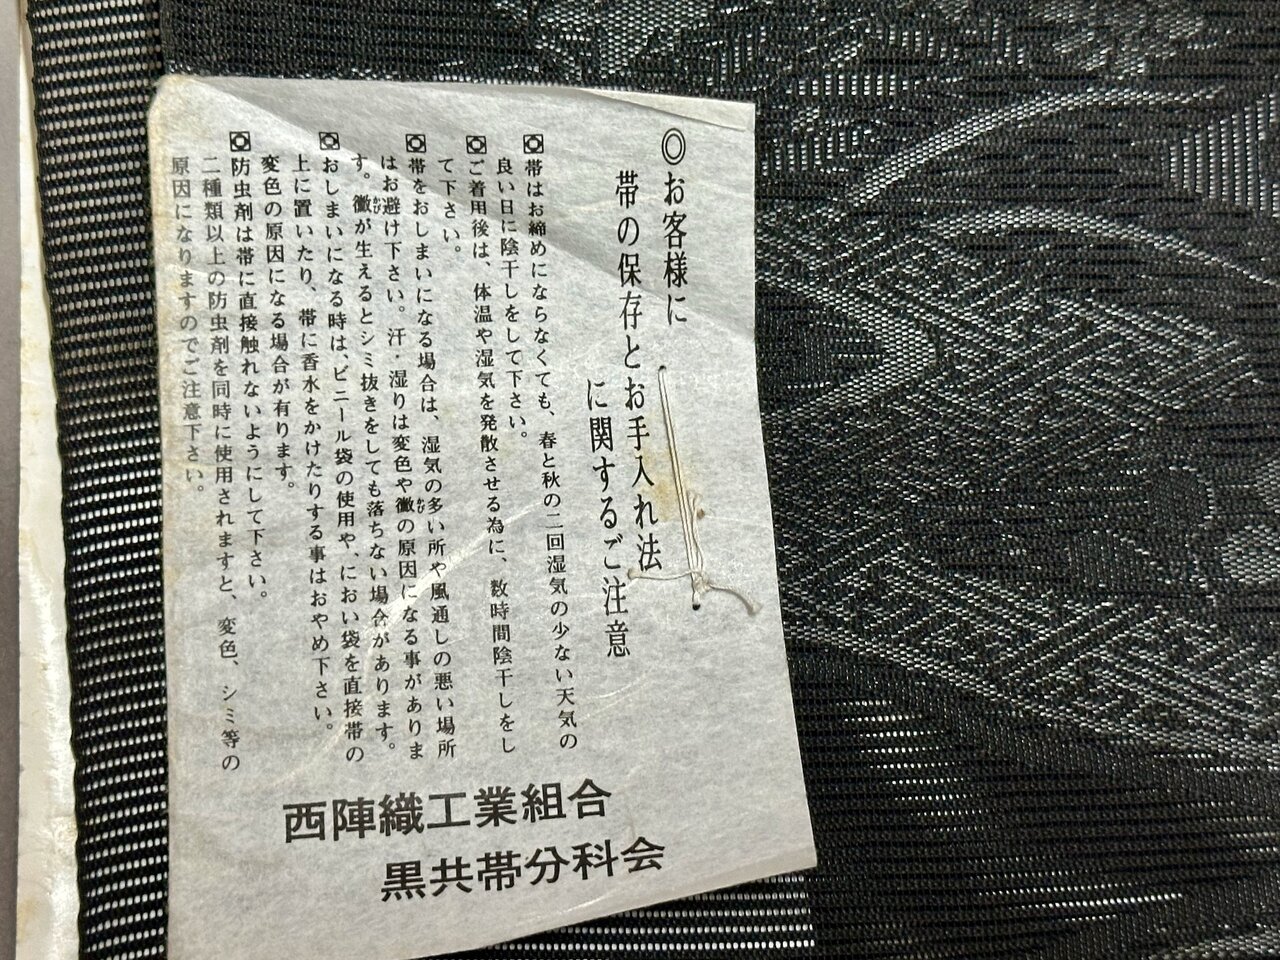 ◎お客様に
帯の保存とお手入れ法
に関するご注意
帯はお締めにならなくても、春と秋の二回湿気の少ない天気の
良い日に陰干しをして下さい。
ご着用後は、体温や湿気を発散させる為に、数時間陰干しをし
て下さい。
帯をおしまいになる場合は、湿気の多い所や風通しの悪い場所
はお避け下さい。汗・湿りは変色や黴かびの原因になる事がありま
す。黴かびが生えるとシミ抜きをしても落ちない場合があります。
おしまいになる時は、ビニール袋の使用や、におい袋を直接帯の
上に置いたり、帯に香水をかけたりする事はおやめ下さい。
変色の原因になる場合が有ります。
防虫剤は帯に直接触れないようにして下さい。
二種類以上の防虫剤を同時に使用されますと、変色、シミ等の
原因になりますのでご注意下さい。
西陣織工業組合
黒共帯分科会